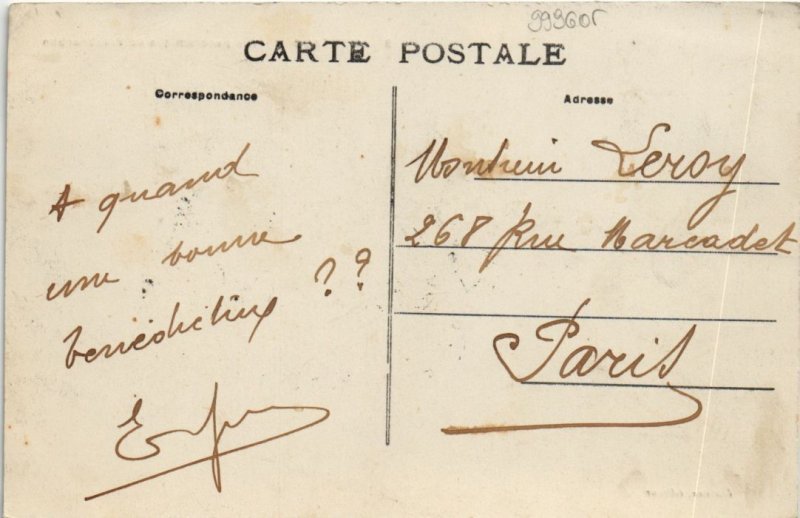 99360r
CARTE POSTALE
Correspondance
A quand
une bonne
bénédictine ??
Adresse
Monsieur Leroy
268 Rue Marcadet
Paris